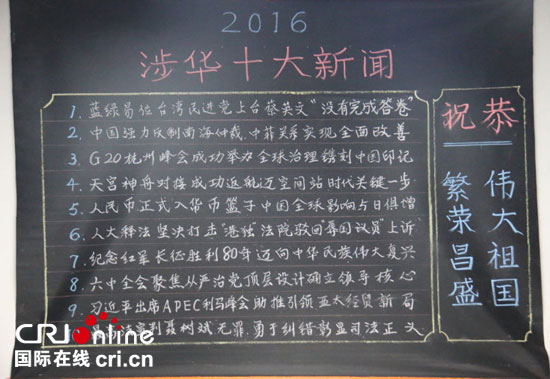 2016
涉华十大新闻
1. 蓝绿易位台湾民进党上台蔡英文"没有完成答卷"
2. 中国强力反制南海仲裁,中菲关系实现全面改善
3. G20杭州峰会成功举办全球治理镌刻中国印记
4. 天宫神舟对接成功返航迈空间站时代关键一步
5. 人民币正式入货币篮子中国全球影响与日俱增
6. 人大释法坚决打击"港独"法院驳回"辱国议员"上诉
7. 纪念红军长征胜利80年迈向中华民族伟大复兴
8. 六中全会聚焦从严治党顶层设计确立领导核心
9. 习近平出席APEC利马峰会助推引领亚太经贸新局
判聂树斌无罪,勇于纠错彰显司法正义
恭祝
伟大祖国
繁荣昌盛
CRI online
国际在线 cri.cn